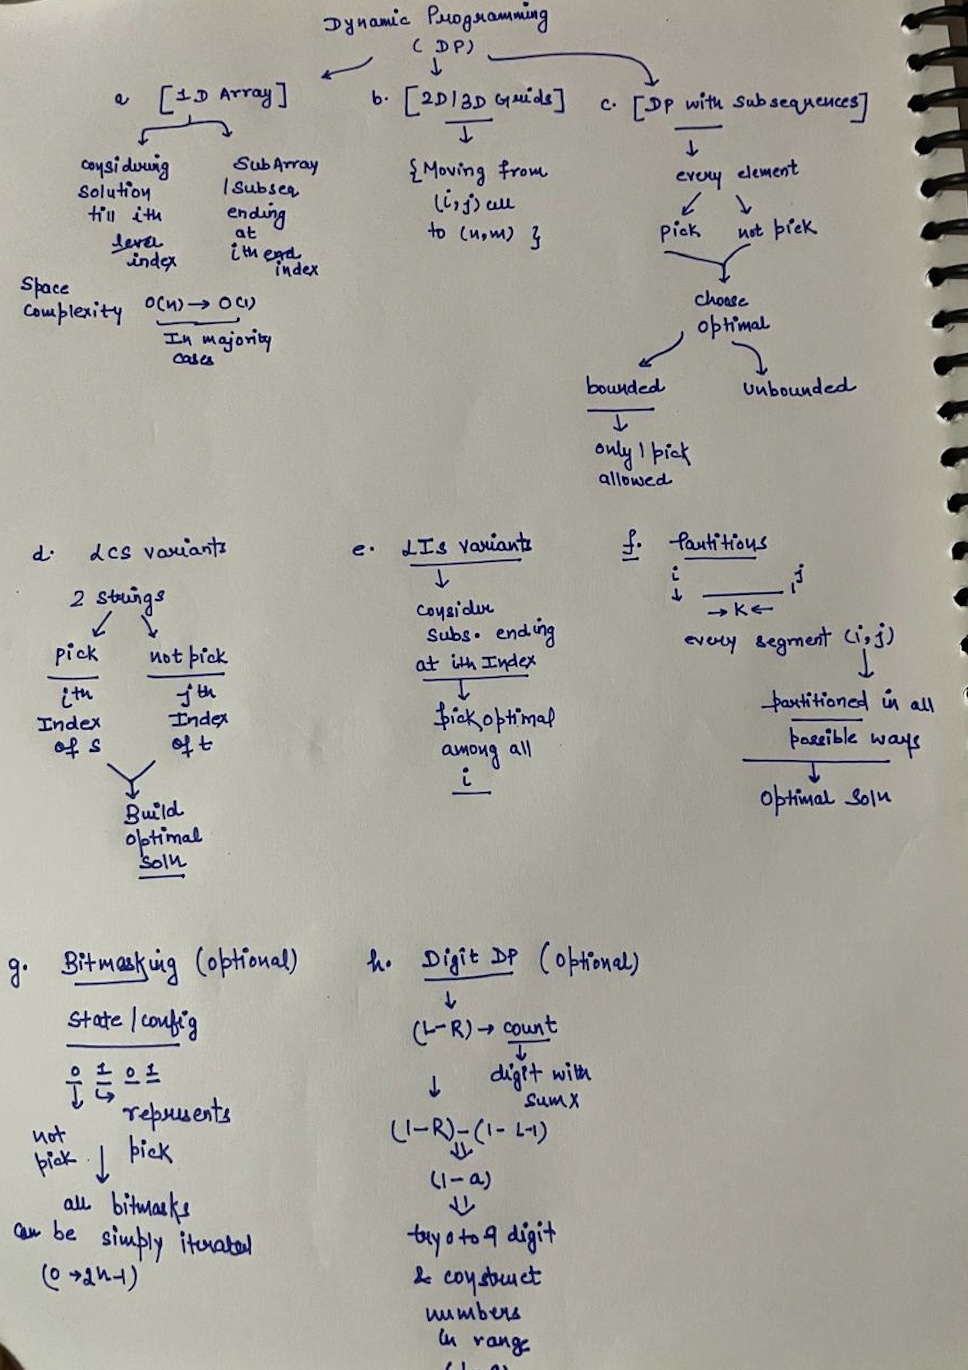 Dynamic Programming
(DP)
a [1D Array]
considering
solution
till ith
level
index
SubArray
/Subseq
ending
at
ith end
index
Space
Complexity O(n) → O(1)
In majority
cases
b. [2D/3D Grids]
{Moving from
(i,j) cell
to (n,m) }
c. [DP with subsequences]
every element
pick not pick
choose
optimal
bounded unbounded
only 1 pick
allowed
d. LCS variants
2 strings
pick not pick
ith jth
Index Index
of s of t
Build
optimal
soln
e. LIS variants
consider
subs. ending
at ith Index
pick optimal
among all
i
f. Partitions
i j
→ K ←
every segment (i,j)
partitioned in all
possible ways
optimal soln
g. Bitmasking (optional)
state / config
0 1 0 1
represents
not
pick pick
all bitmasks
can be simply iterated
(0 → 2n-1)
h. Digit DP (optional)
(L-R) → count
digit with
sum x
(1-R)-(1-L-1)
(1-a)
try 0 to 9 digit
& construct
numbers
in range